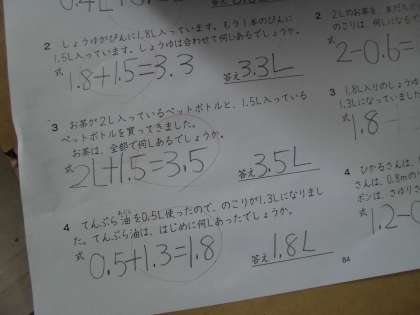 0.4L+
2 しょうゆがびんに1.8L入っています。もう1本のびんに
1.5L入っています。しょうゆは合わせて何Lあるでしょうか。
式 1.8+1.5=3.3
答え 3.3L
3 お茶が2L入っているペットボトルと、1.5L入っている
ペットボトルを買ってきました。
お茶は、全部で何Lあるでしょうか。
式 2L+1.5=3.5
答え 3.5L
4 てんぷら油を0.5L使ったので、のこりが1.3Lになりまし
た。てんぷら油は、はじめに何Lあったでしょうか。
式 0.5+1.3=1.8
答え 1.8L
84
2 2Lのお茶を、
のこりは、何Lになる
2-0.6=
3 1.8L入りのしょうゆ
1.3Lになっていました
1.8
4 ひかるさんは、
さんは、0.8mの
ボンは、さゆり
1.2-0